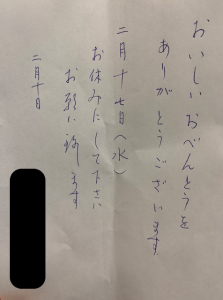 おいしい おべんとうを
ありがとうございます
二月十七日(水)
お休みにして下さい
お願い致します
二月十日